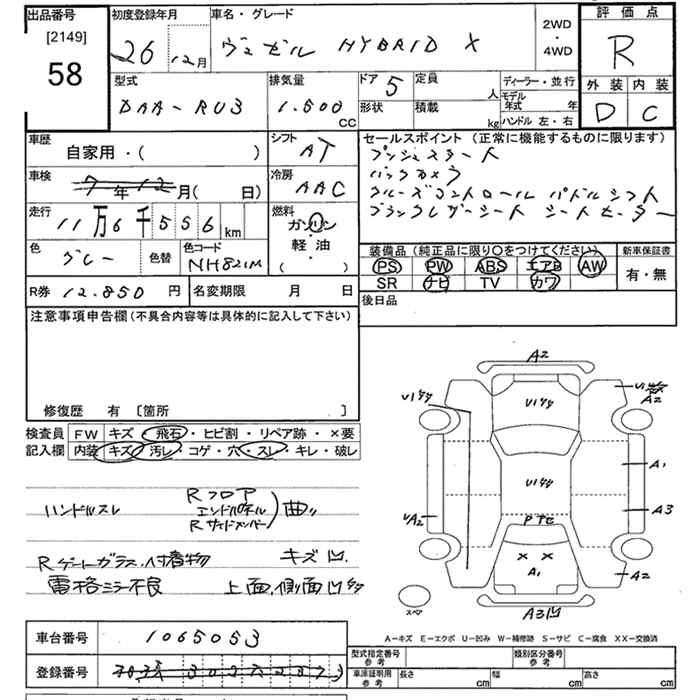 出品番号 [2149] 58
初度登録年月 26 12月
車名・グレード ヴェゼル HYBRID X
2WD・4WD
評価点 R
外装 D 内装 C
型式 DAA-RU3
排気量 1.500 CC
ドア 5 定員 人
形状 積載 kg
ディーラー・並行
モデル年式 年
ハンドル 左・右
車歴 自家用・( )
シフト AT
車検 7年12月( 日)
冷房 AAC
走行 11万6千556km
燃料 ガソリン 軽油 ( ・ )
色 グレー 色替 色コード NH821M
R券 12.850円 名変期限 月 日
セールスポイント(正常に機能するものに限ります)
プッシュスタート
バックカメラ
クルーズコントロール パドルシフト
ブラックレザーシート シートヒーター
装備品(純正品に限り○をつけてください) 新車保証書
PS PW ABS エアB AW 有・無
SR ナビ TV カワ
後日品
注意事項申告欄(不具合内容等は具体的に記入して下さい)
修復歴 有 〔箇所 〕
検査員記入欄 FW キズ・飛石・ヒビ割・リペア跡・×要
内装 キズ・汚レ・コゲ・穴・スレ・キレ・破レ
ハンドルスレ Rフロア エンドパネル Rサイドメンバー 曲り
Rゲートガラス.付着物 キズ凹.
電格ミラー不良 上面,側面凹キズ
A2
U1キズ U1キズ A2
U1キズ
A1
UA2 A3
× ×
A1 A2
スペア A3凹
A-キズ E-エクボ U-凹み W-補修跡 S-サビ C-腐食 XX-交換済
車台番号 1065053
登録番号
型式指定番号 参考 類別区分番号 参考
車庫証明用 参考 長さ cm 幅 cm 高さ cm